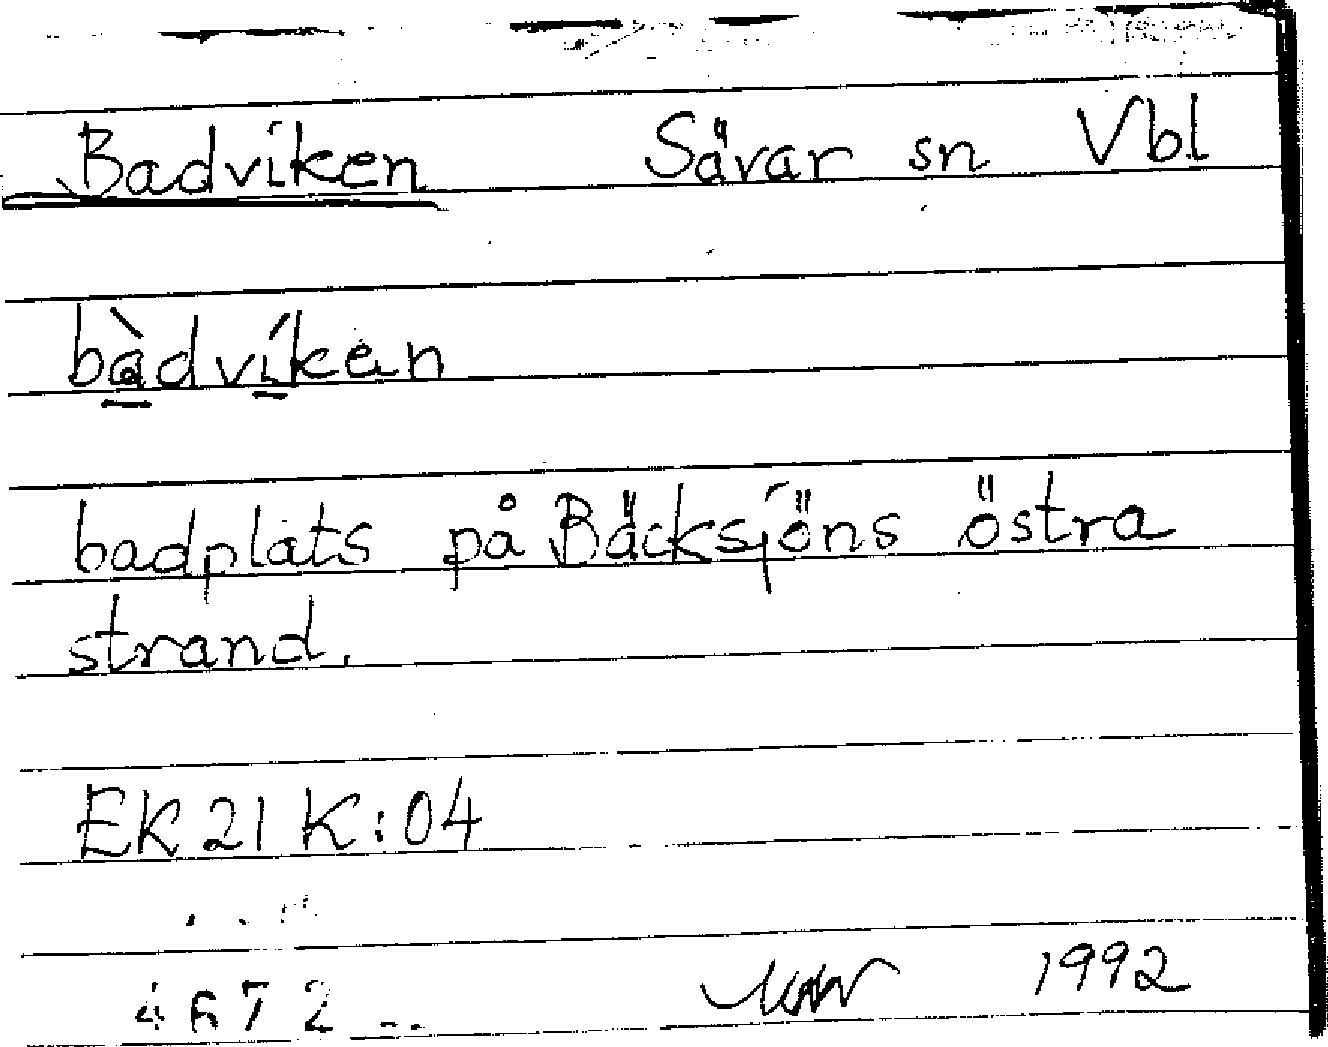 Badviken Sävar sn Vbl
bàdvíken
badplats på Bäcksjöns östra
strand.
EK 21 K:04
4672
1992